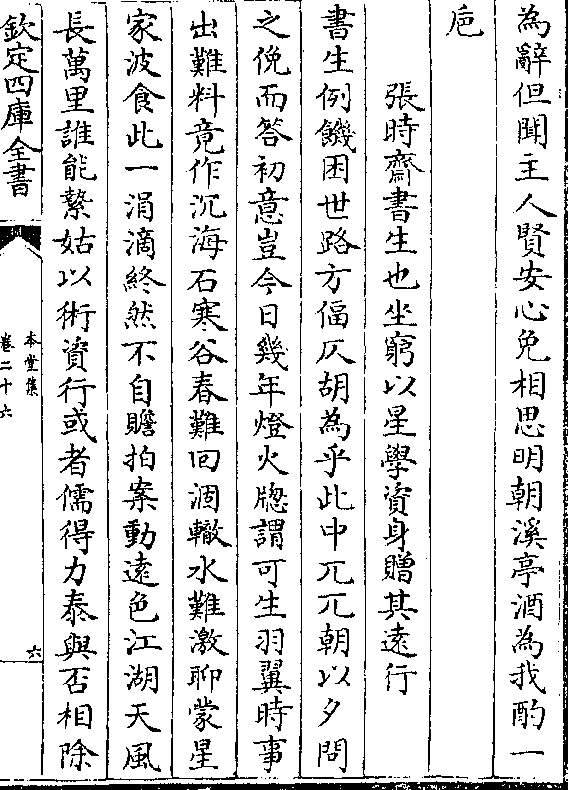 為辭但聞主人賢安心免相思明朝溪亭酒為我酌一
巵
張時齋書生也坐窮以星學資身贈其遠行
書生例饑困世路方偪仄胡為乎此中兀兀朝以夕問
之俛而答初意豈今日幾年燈火牕謂可生羽翼時事
出難料竟作沉海石寒谷春難回涸轍水難激聊蒙星
家波食此一涓滴終然不自贍拍案動遠色江湖天風
長萬里誰能縶姑以術資行或者儒得力泰與否相除
欽定四庫全書
本堂集
卷二十六
六